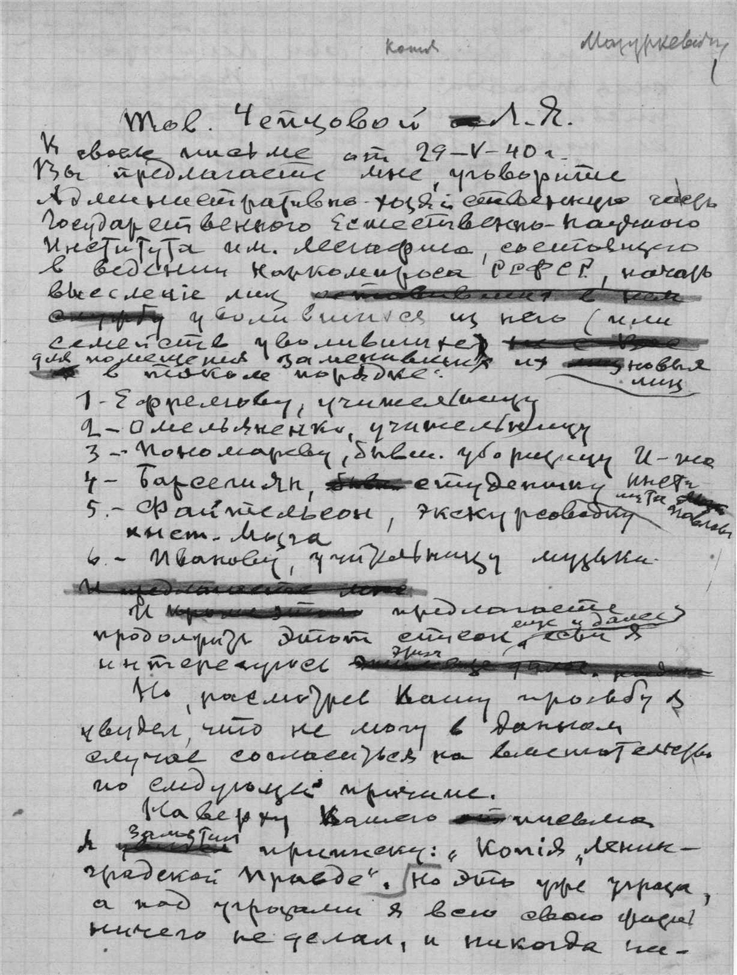 Копия
Мазуркевичу
1
Тов. Чепцовой Л.Я.
В своем письме от 29-V-40 г.
Вы предлагаете мне уговорить
Административно-хозяйственную часть
Государственного Естественно-научного
Института им. Лесгафта, состоящего
в ведении Наркомпроса РСФСР, начать
выселение лиц оставшихся в нем
службу уволившихся из него (или
семейств уволившихся)
для помещения заменивших их новых
лиц
в таком порядке:
1- Ефремову, учительницу
2- Омельяненко, учительницу
3- Пономареву, бывш. уборщицу И-та
4- Барсегиян, студентку Инсти
тута
Павлова
5.- Файтельсон, экскурсоводку
инст. Мозга
6.- Иванову, учительницу музыки.
И предлагаете мне
И кроме этого предлагаете
продолжить этот список еще и далее, если я
интересуюсь этим
Но, расмотрев Вашу просьбу я
увидел, что не могу в данном
случае согласиться на
по следующей причине.
Наверху Вашего письма
я заметил приписку: „Копiя „Ленин-
градской Правде“. Но это уже угроза,
а под угрозами я всю свою
ничего не делал, и никогда ни-